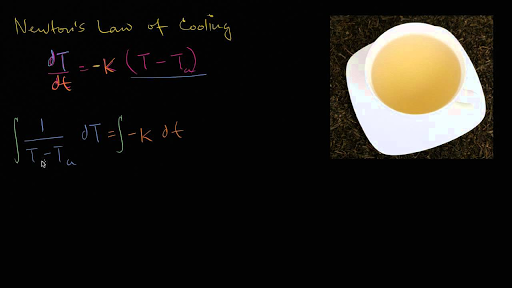 Newton's Law of Cooling
dT/dt = -K (T - Ta)
∫ 1/(T - Ta) dT = ∫ -K dt